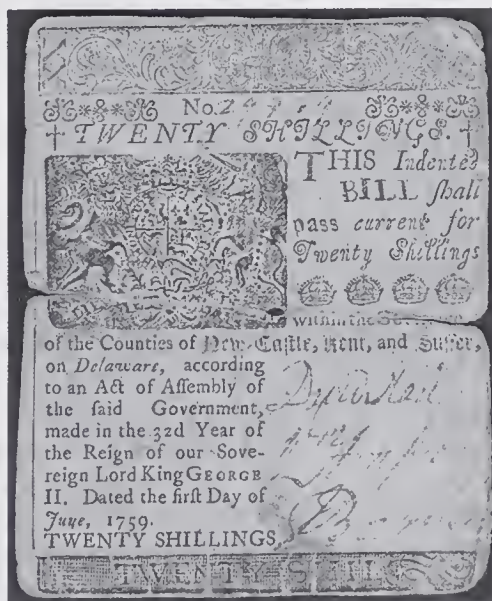 No.
TWENTY SHILLINGS.
THIS Indented
BILL ſhall
paſs current for
Twenty Shillings
within the
of the Counties of New-Caſtle, Kent, and Suſſex,
on Delaware, according
to an Act of Aſſembly of
the ſaid Government,
made in the 32d Year of
the Reign of our Sove-
reign Lord King GEORGE
II. Dated the firſt Day of
June, 1759.
TWENTY SHILLINGS
TWENTY SHILS